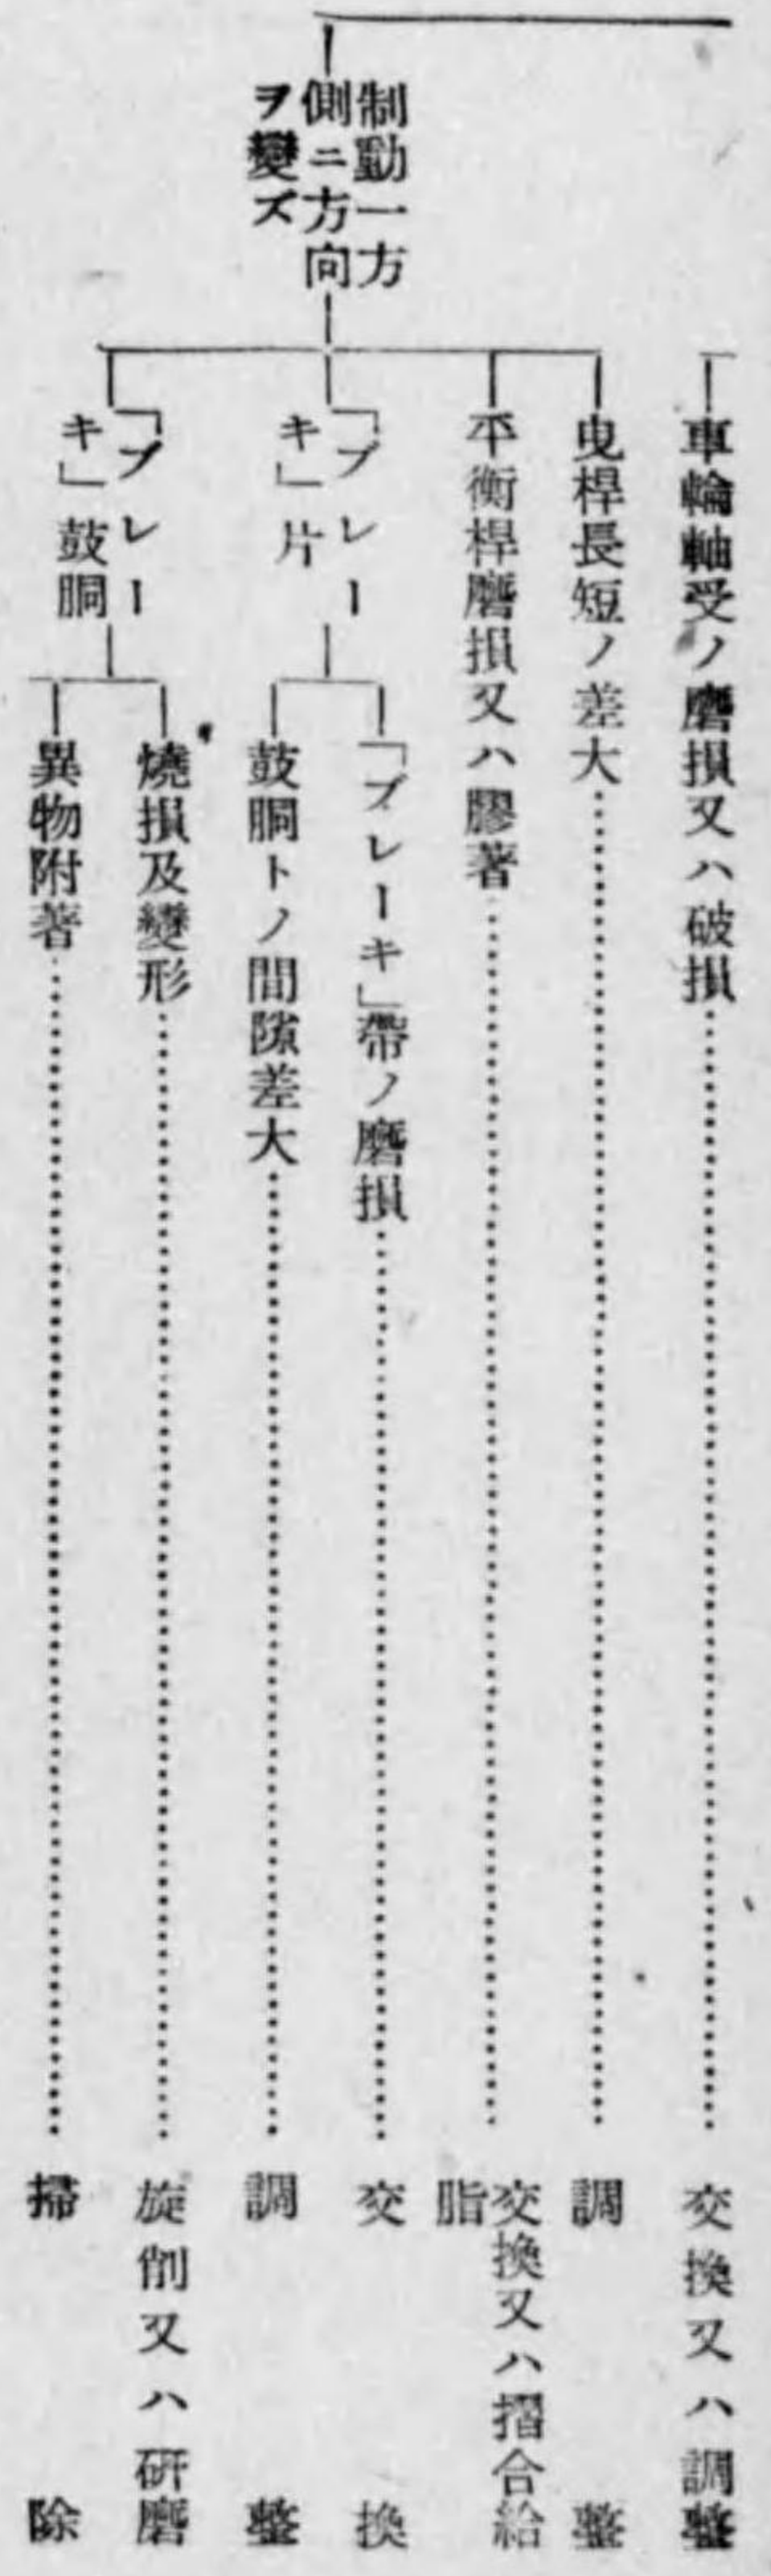 車輪軸受ノ磨損又ハ破損……交換又ハ調整
制動一方
側ニ方向
ヲ變ズ
曳桿長短ノ差大……調整
平衡桿磨損又ハ膠著……交換又ハ摺合給
脂
「ブレー
キ」片
「ブレーキ」帶ノ磨損……交換
鼓胴トノ間隙差大……調整
「ブレー
キ」鼓胴
燒損及變形……旋削又ハ研磨
異物附著……掃除